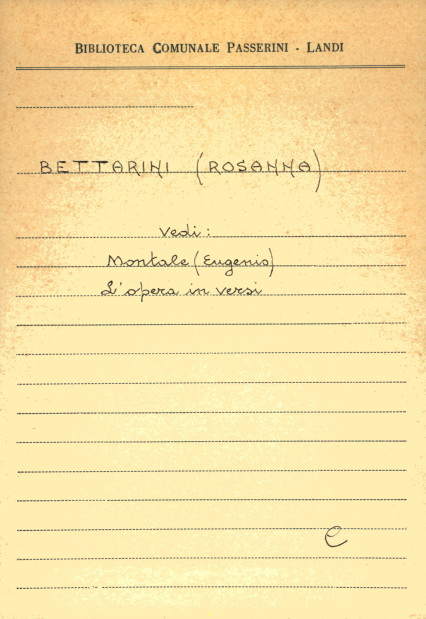 BIBLIOTECA COMUNALE PASSERINI - LANDI
BETTARINI (ROSANNA)
Vedi:
Montale (Eugenio)
L'opera in versi
C